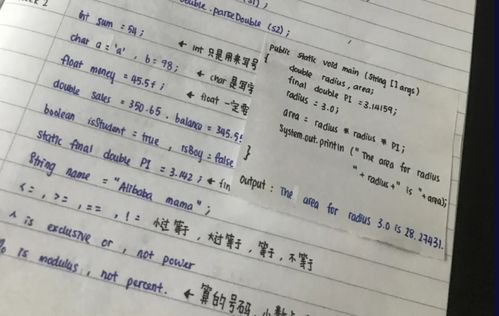 Double.parseDouble (s2);
int sum = 54;
char a = 'a', b = 98; ← int 只是用来写号
float money = 45.5f; ← char 是写字
double sales = 350.65, balance = 345.5f ← float 一定要
boolean isStudent = true, isBoy = false
static final double PI = 3.142; ← fin
String name = "Alibaba mama";
<=, >=, ==, != 小过等于, 大过等于, 等于, 不等于
^ is exclusive or, not power
% is modulus, not percent. ← 算的号码,
public static void main (String [] args)
{
double radius, area;
final double PI = 3.14159;
radius = 3.0;
area = radius * radius * PI;
System.out.println ("The area for radius
" + radius + " is " + area);
}
Output : The area for radius 3.0 is 28.27431.